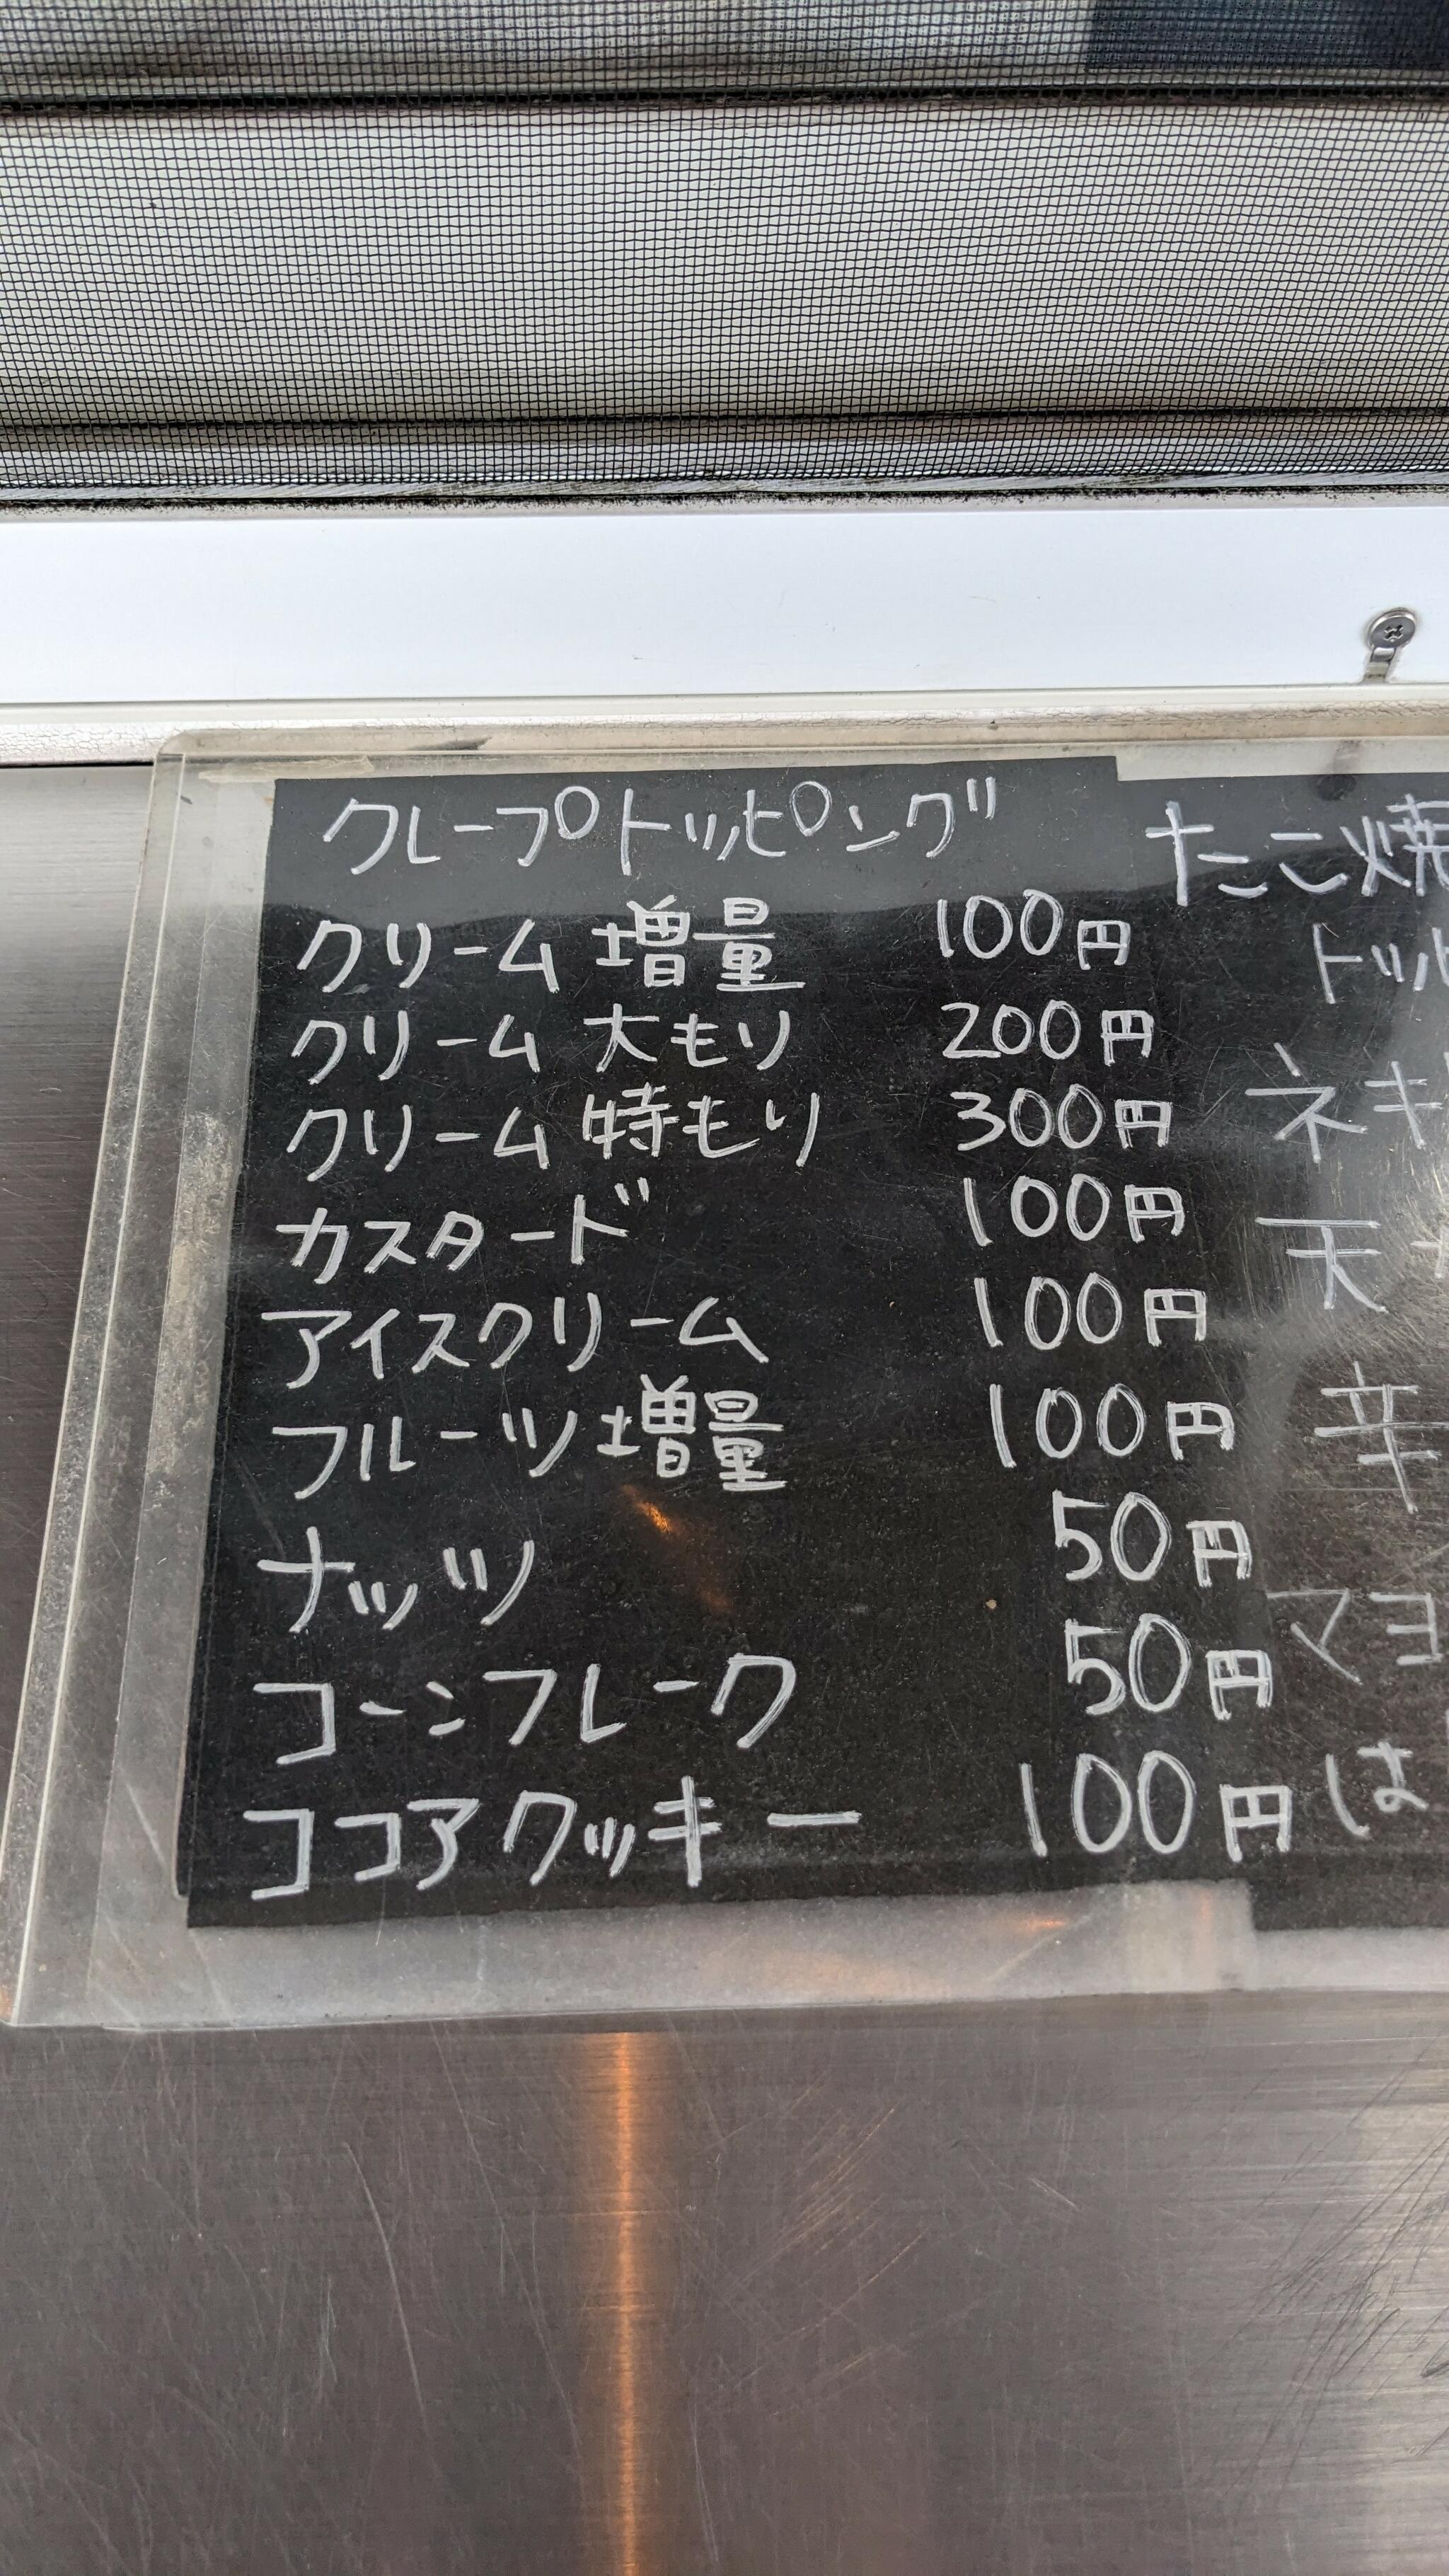 クレープトッピング
クリーム増量 100円
クリーム 大もり 200円
クリーム 特もり 300円
カスタード 100円
アイスクリーム 100円
フルーツ増量 100円
ナッツ 50円
コーンフレーク 50円
ココアクッキー 100円
たこ焼
トッ
ネギ
天
辛
マヨ
は